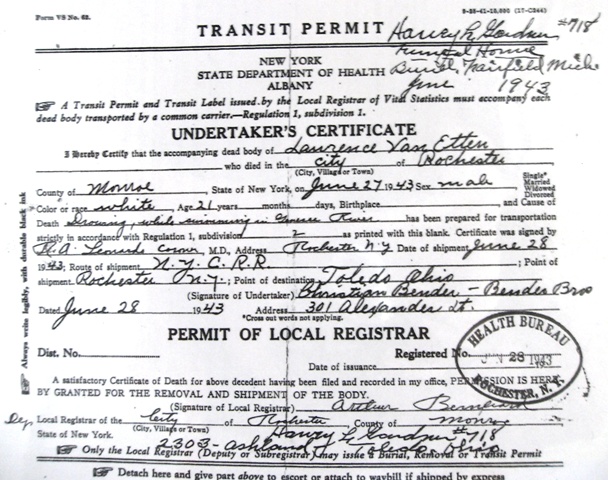 Form VS No. 62. 9-25-41-10,000 (17-C244)
TRANSIT PERMIT Harvey L. Gardner #718
Funeral Home
NEW YORK
STATE DEPARTMENT OF HEALTH Burial Fairfield Mich
ALBANY June 1943
A Transit Permit and Transit Label issued by the Local Registrar of Vital Statistics must accompany each
dead body transported by a common carrier.—Regulation 1, subdivision 1.
UNDERTAKER'S CERTIFICATE
I Hereby Certify that the accompanying dead body of Lawrence Van Etten
who died in the City of Rochester
(City, Village or Town)
County of Monroe, State of New York, on June 27 1943 Sex male
Single*
Married
Widowed
Divorced
Color or race white, Age 21 years months days, Birthplace and Cause of
Death Drowning, while swimming in Genesee River has been prepared for transportation
strictly in accordance with Regulation 1, subdivision 2 as printed with this blank. Certificate was signed by
, M.D., Address Rochester N.Y. Date of shipment June 28
1943; Route of shipment N.Y.C.R.R. ; Point of
shipment Rochester N.Y.; Point of destination Toledo Ohio
(Signature of Undertaker) Christian Bender - Bender Bros
Dated June 28 1943 Address 301 Alexander St.
*Cross out words not applying.
PERMIT OF LOCAL REGISTRAR
Dist. No. Registered No.
Date of issuance
HEALTH BUREAU
JUN 28 1943
ROCHESTER, N.Y.
A satisfactory Certificate of Death for above decedent having been filed and recorded in my office, PERMISSION IS HERE-
BY GRANTED FOR THE REMOVAL AND SHIPMENT OF THE BODY.
(Signature of Local Registrar) Arthur
Dep Local Registrar of the City of Rochester County of Monroe
(City, Village or Town)
State of New York. Harvey L. Gardner #718
2303-Ashland Toledo Ohio
Only the Local Registrar (Deputy or Subregistrar) may issue a Burial, Removal or Transit Permit
Detach here and give part above to escort or attach to waybill if shipped by express
Always write legibly, with durable black ink